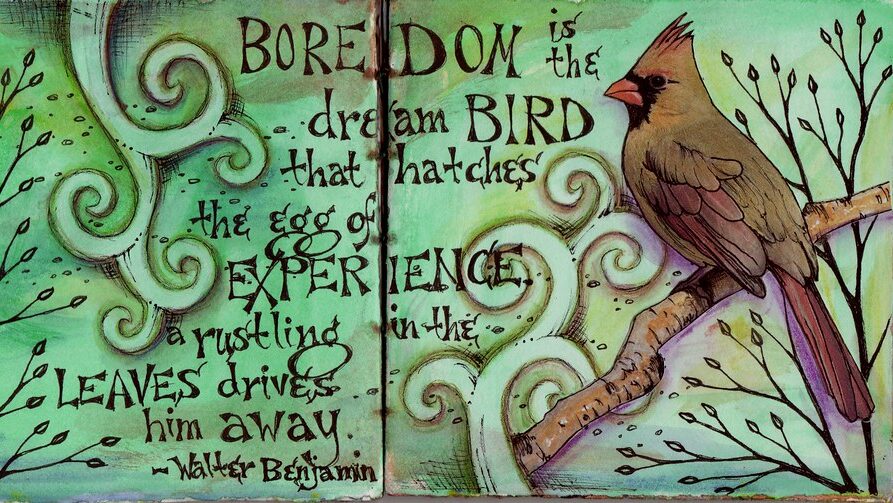 BOREDOM is
the
dream BIRD
that hatches
the egg of
EXPERIENCE.
a rustling in the
LEAVES drives
him away.
~Walter Benjamin